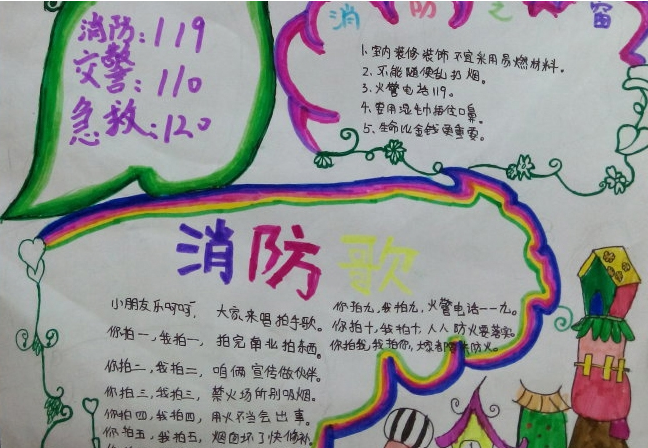 消防：119
交警：110
急救：120
消防之窗
1、室内装修装饰不宜采用易燃材料。
2、不能随便乱扔烟。
3、火警电话119。
4、要用湿毛巾捂住口鼻。
5、生命比金钱更重要。
消防歌
小朋友乐呵呵， 大家来唱拍手歌。
你拍一，我拍一， 拍完南北拍东西。
你拍二，我拍二， 咱俩宣传做伙伴。
你拍三，我拍三， 禁火场所别吸烟。
你拍四，我拍四， 用火不当会出事。
你拍五，我拍五， 烟囱坏了快修补。
你拍九，我拍九，火警电话一一九。
你拍十，我拍十，人人防火要落实。
你拍我，我拍你，大家都防火。